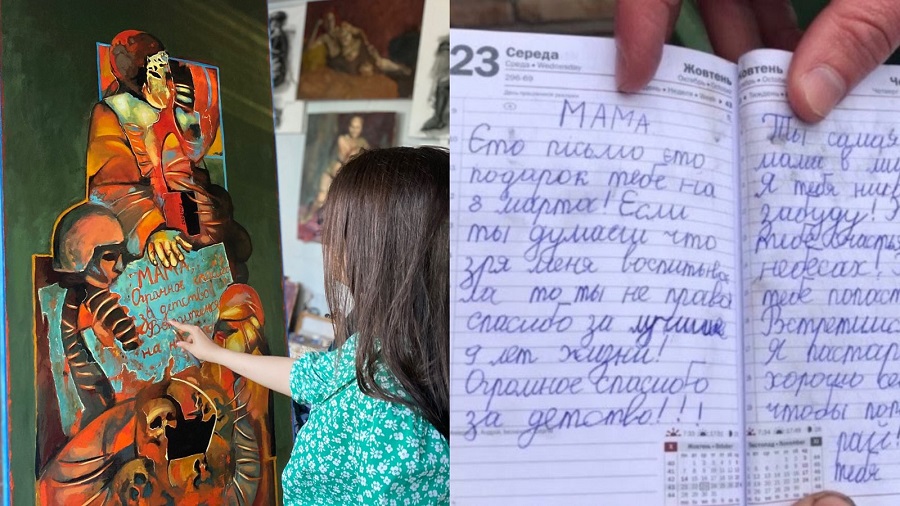 МАМА
Огромное
за детство
на
23 Середа
Среда • Wednesday
296-69
Жовтень
МАМА
Єто пісьмо єто
подарок тебе на
8 марта! Если
ты думаеш что
зря меня воспитыва
ла то ты не права
спасибо за лучшие
9 лет жизни!
Огромное спасибо
за детство!!!
овтень
Ты самая
мама в ми
Я тебя ник
забуду!
тебе
небесах.
тебе попаст
Встретимс
Я пастар
хорошо ве
чтобы поп
рай!
тебя